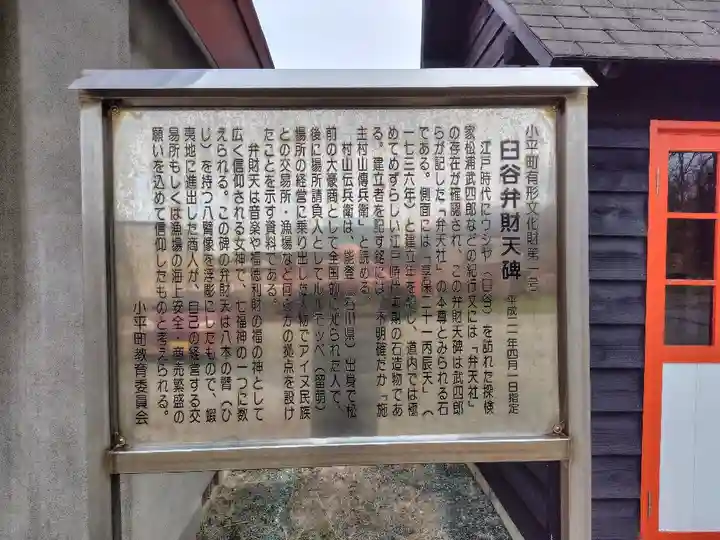 小平町有形文化財第一号
臼谷弁財天碑
平成二年四月一日指定
江戸時代にウシヤ(臼谷)を訪れた探検
家松浦武四郎などの紀行文には「弁天社」
の存在が確認され、この弁財天碑は武四郎
らが記した「弁天社」の本尊とみられる石
である。側面には「享保二十一丙辰天」(
一七三六年)と建立年を記し、道内では極
めてめずらしい江戸時代中期の石造物であ
る。建立者を記す銘には、不明確だが「施
主村山傳兵衛」と読める。
「村山伝兵衛」は、能登(石川県)出身で松
前の大豪商として全国的に知られた人で、
後に場所請負人としてルルモッペ(留萌)
場所の経営に乗り出し、小平町でアイヌ民族
との交易所・漁場など何らかの拠点を設け
たことを示す資料である。
弁財天は音楽や福徳利財の福の神として
広く信仰される女神で、七福神の一つに数
えられる。この碑の弁財天は八本の臂(ひ
じ)を持つ八臂像を浮彫にしたもので、蝦
夷地に進出した商人が、自己の経営する交
易所もしくは漁場の海上安全・商売繁盛の
願いを込めて信仰したものと考えられる。
小平町教育委員会